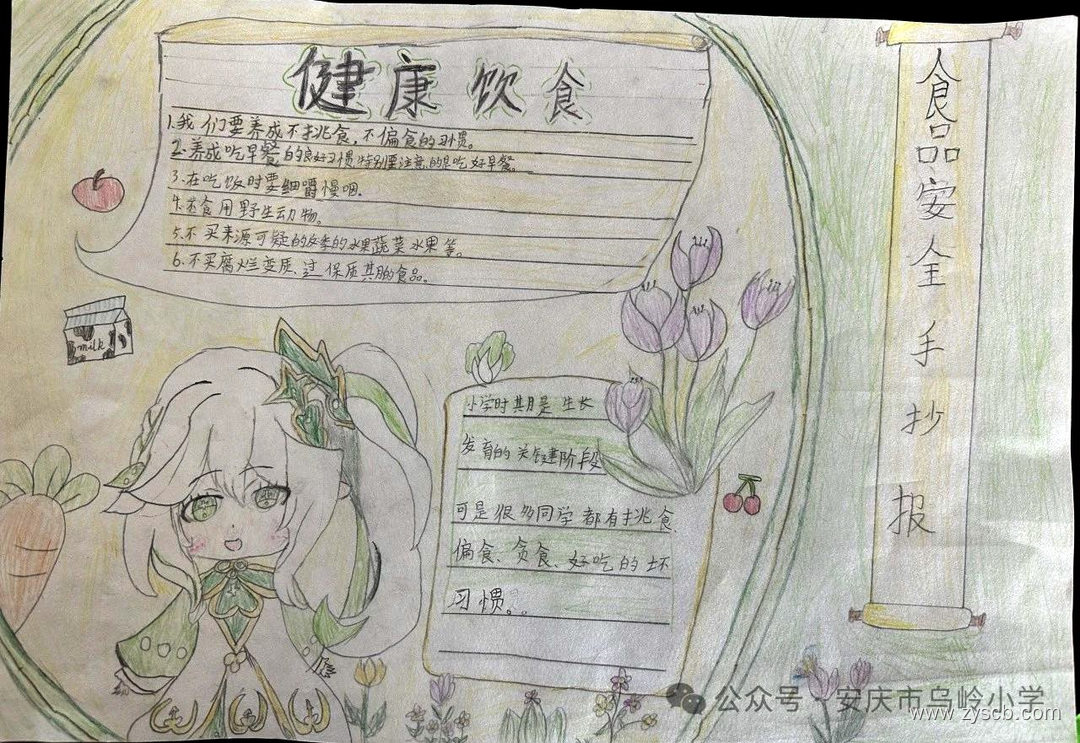 健康饮食
1.我们要养成不挑食,不偏食的习惯。
2.养成吃早餐的良好习惯特别要注意的是吃好早餐。
3.在吃饭时要细嚼慢咽.
4.不食用野生动物。
5.不买来源可疑的反季的水果蔬菜水果等。
6.不买腐烂变质、过保质期的食品。
milk
小学时期是生长
发育的关键阶段
可是很多同学都有挑食
偏食、贪食、好吃的坏
习惯。
食品安全手抄报
公众号·安庆市乌岭小学
www.zyscb.com